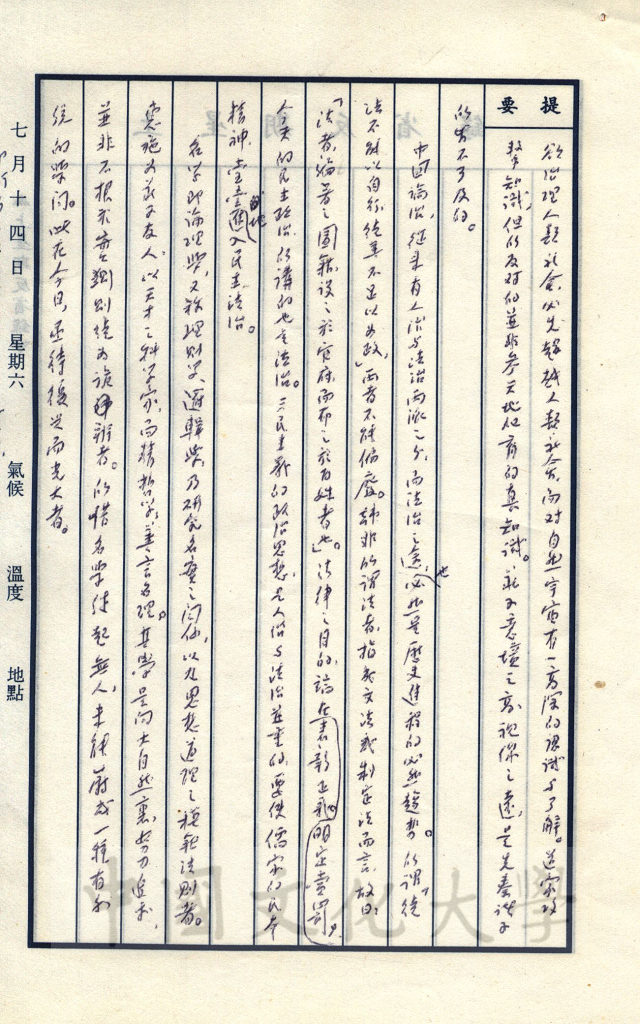 提要
欲治理人類社會,必先超越人類社會,而對自然宇宙有一高深的認識与了解。道家攻
擊知識,但所反对的並非參天地化育的真知識。莊子意境之高,視你之遠,是先秦諸子
所共不及的。
中国論治,従来有人治与法治兩派之分,而法治之途,必然是歷史進程的必然趨勢也。所謂「徒
法不能以自行,徒善不足以為政」,兩者不能偏廢。韓非所謂法者,指成文法或制定法而言,故曰:
「法者,編著之圖籍,設之於官府,而布之於百姓者也」。法律之目的,論在表彰正義,明定賞罰。
今天的民主政治,所講的也是法治。三民主義的政治思想,是人治与法治並重的,要使儒家的民本
精神,進入民主法治。
名学即論理學,又称理則学、邏輯學,乃研究名實之関係,以及思想道理之模範法則者。
惠施为莊子友人,以天才之科学家,而精哲学,善言名理。其學是向大自然裏,努力追求,
並非不根求實,獨別徒为詭辨者。所惜名學徒起無人,未能蔚成一種有系
統的學問。此在今日,亟待復興而光大者。
七月十四日 星期六 氣候 溫度 地點
中國文化大學